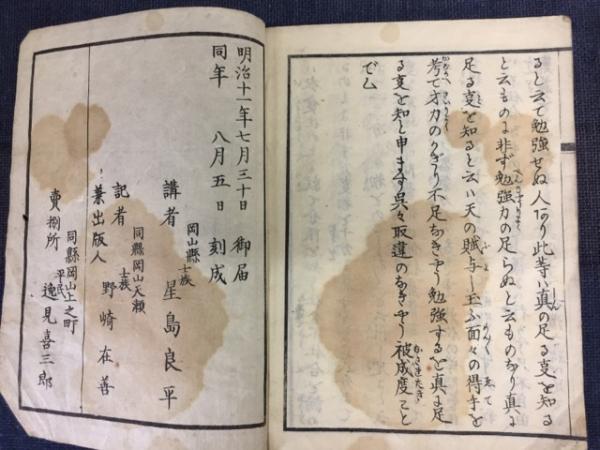 ると云て勉強せぬ人アリ此等ハ真の足る㕝を知る
と云ものに非ず勉強力の足らぬと云ものなり真に
足る㕝を知ると云ハ天の賦与し玉ふ面々の得手を
考て才力のかぎり不足なきやう勉強するを真に足
る㕝を知と申ます呉々取違のなきやう被成度こと
でム
明治十一年七月三十日 御届
同年 八月五日 刻成
岡山縣士族
講者 星島良平
同縣岡山天瀬
士族
記者 野崎在善
兼出版人
同縣岡山上之町
平民
賣捌所 逸見喜三郎